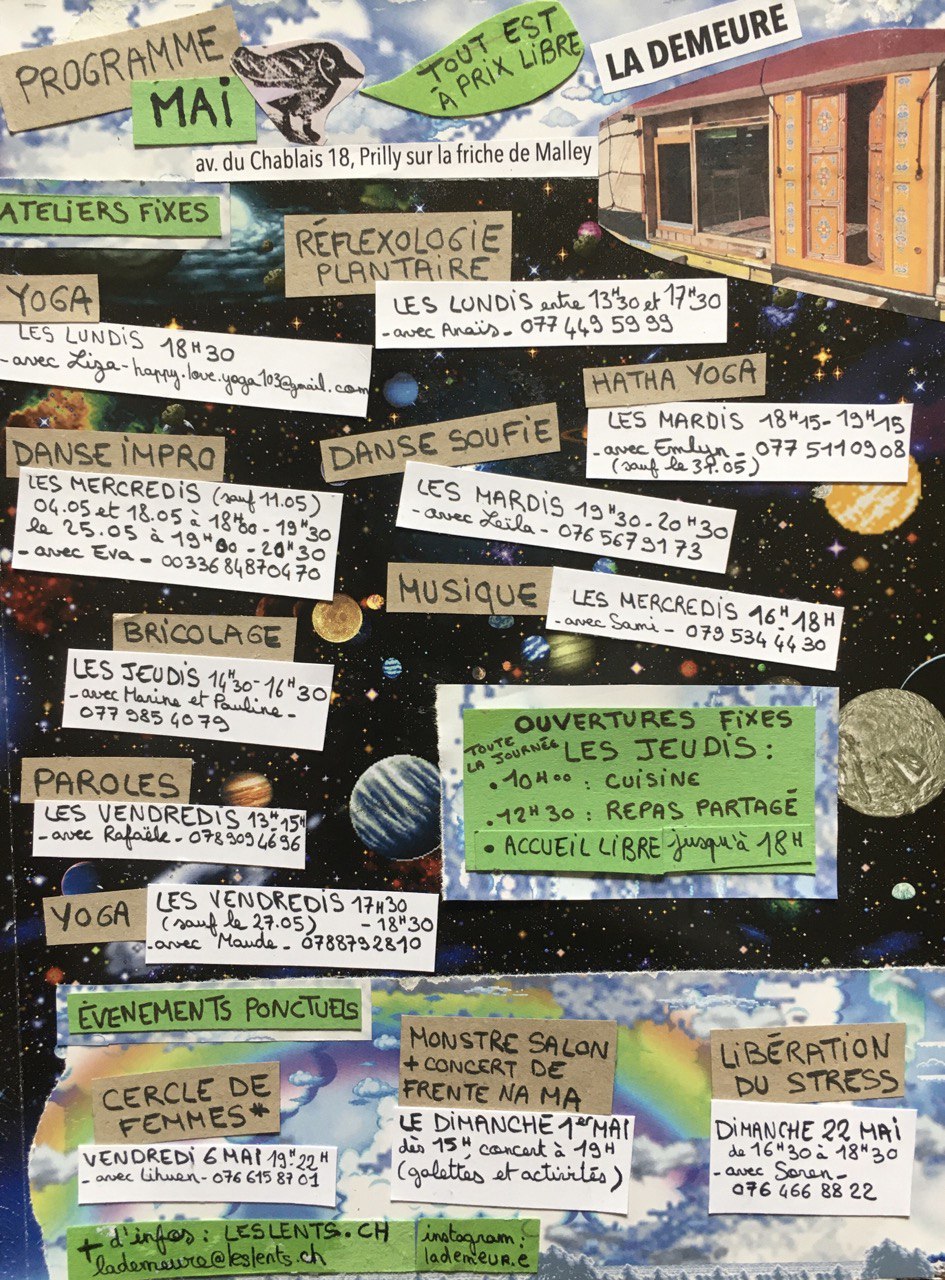 PROGRAMME
MAI
TOUT EST
À PRIX LIBRE
LA DEMEURE
av. du Chablais 18, Prilly sur la friche de Malley
ATELIERS FIXES
RÉFLEXOLOGIE
PLANTAIRE
LES LUNDIS entre 13H30 et 17H30
- avec Anaïs - 077 449 59 99
YOGA
LES LUNDIS 18H30
- avec Liza - happy.love.yoga103@gmail.com
HATHA YOGA
LES MARDIS 18H15 - 19H15
- avec Emlyn - 077 5110908
(sauf le 31.05)
DANSE IMPRO
LES MERCREDIS (sauf 11.05)
04.05 et 18.05 à 18H00 - 19H30
le 25.05 à 19H00 - 20H30
- avec Eva - 0033684870470
DANSE SOUFIE
LES MARDIS 19H30 - 20H30
- avec Leïla - 076 567 91 73
MUSIQUE
LES MERCREDIS 16H - 18H
- avec Sami - 079 534 44 30
BRICOLAGE
LES JEUDIS 14H30 - 16H30
- avec Marine et Pauline -
077 985 40 79
OUVERTURES FIXES
TOUTE
LA JOURNÉE
LES JEUDIS :
• 10H00 : CUISINE
• 12H30 : REPAS PARTAGÉ
• ACCUEIL LIBRE jusqu'à 18H
PAROLES
LES VENDREDIS 13H - 15H
- avec Rafaële - 0789094696
YOGA
LES VENDREDIS 17H30
(sauf le 27.05) - 18H30
- avec Maude - 0788792810
ÉVENEMENTS PONCTUELS
CERCLE DE
FEMMES*
VENDREDI 6 MAI 19H-22H
- avec Lihuen - 076 615 87 01
MONSTRE SALON
+ CONCERT DE
FRENTE NA MA
LE DIMANCHE 1er MAI
dès 15H, concert à 19H
(galettes et activités)
LIBÉRATION
DU STRESS
DIMANCHE 22 MAI
de 16H30 à 18H30
- avec Soren -
076 466 88 22
+ d'infos : LESLENTS.CH
lademeure@leslents.ch
instagram :
lademeur.e